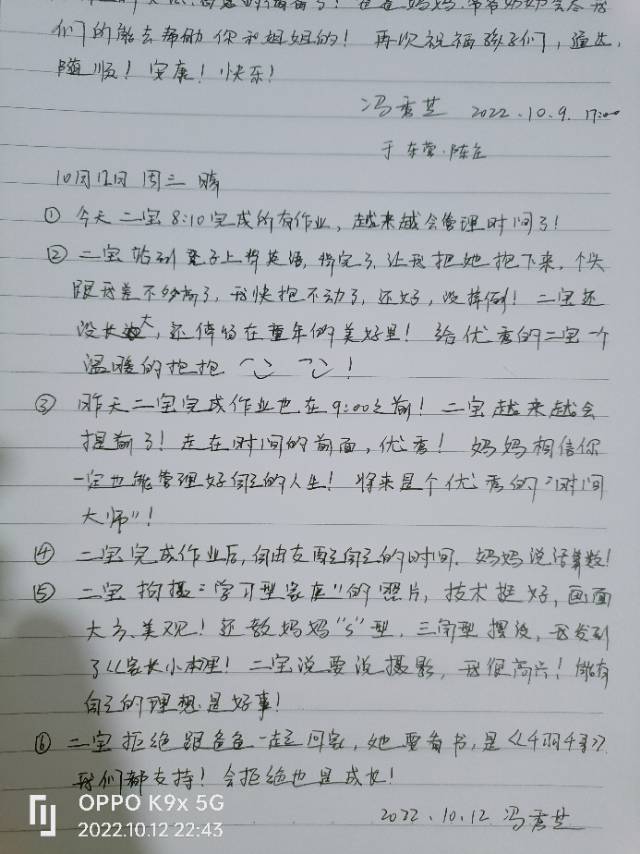 们的能去帮助你和姐姐的！再次祝福孩子们，通达，
随顺！安康！快乐！
冯秀芝 2022.10.9. 17:00
于东营·陈庄
10月12日 周三 晴
① 今天二宝8:10完成所有作业，越来越会管理时间了！
② 二宝站到凳子上背英语，背完了，让我把她抱下来，个头
跟我差不多高了，我快抱不动了，还好，没摔倒！二宝还
没长大，还停留在童年的美好里！给优秀的二宝一个
温暖的抱抱！
③ 昨天二宝完成作业也在9:00之前！二宝越来越会
提前了！走在时间的前面，优秀！妈妈相信你
一定也能管理好自己的人生！将来是个优秀的“时间
大师”！
④ 二宝完成作业后，自由支配自己的时间，妈妈说话算数！
⑤ 二宝拍摄“学习型家庭”的照片，技术挺好，画面
大方、美观！还教妈妈“S”型，三角型摆设，我发到
了《家长小本》里！二宝说要学摄影，我很高兴！能有
自己的理想是好事！
⑥ 二宝拒绝跟爸爸一起回家，她要看书，是
我们都支持！会拒绝也是成长！
2022.10.12 冯秀芝
OPPO K9x 5G
2022.10.12 22:43